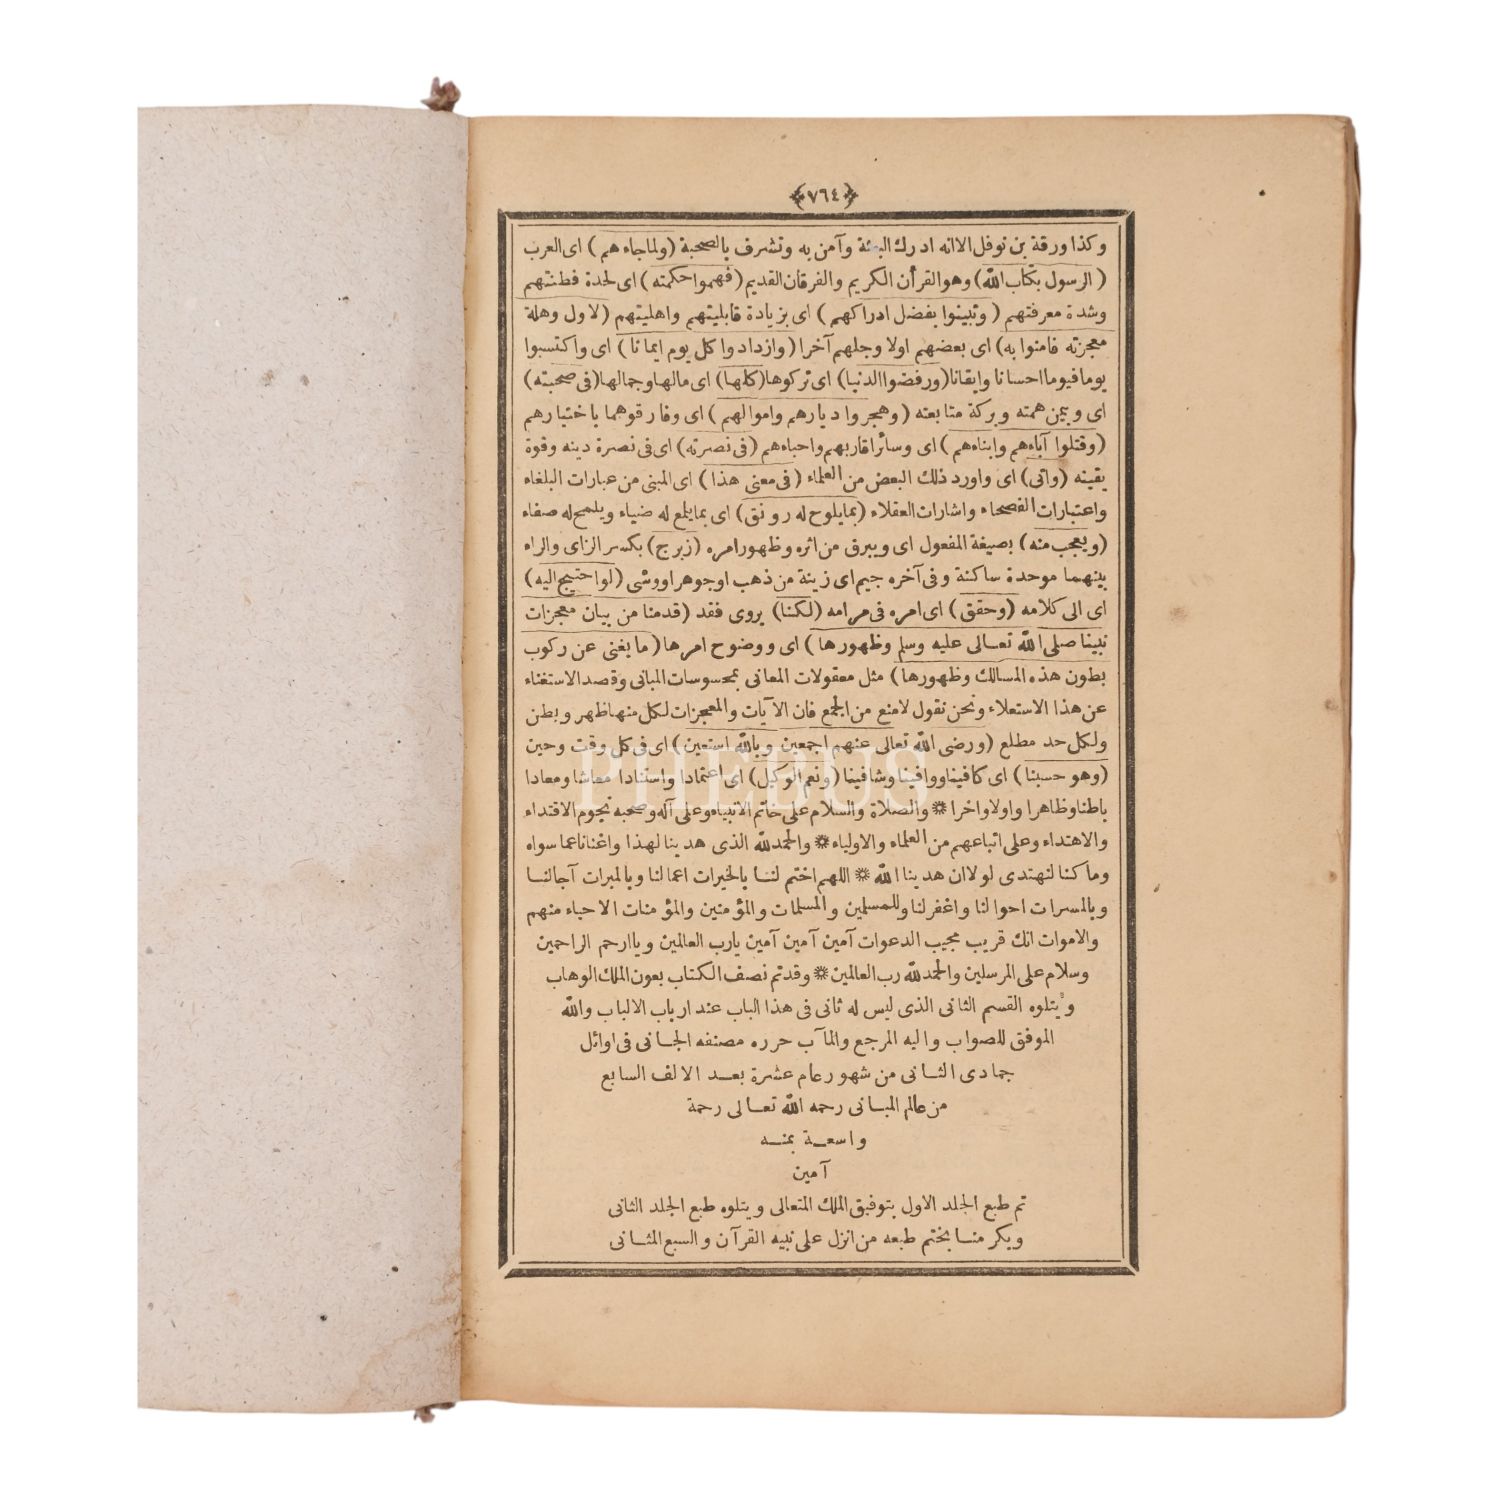 ﴿٧٦٤﴾
وكذا ورقة بن نوفل الاانه ادرك البعثة وآمن به وتشرف بالصحبة (ولماجاءهم) اى العرب
(الرسول بكتاب الله) وهوالقرأن الكريم والفرقان القديم (فهموا حكمته) اى لحدة فطنتهم
وشدة معرفتهم (وتبينوا بفضل ادراكهم) اى بزيادة قابليتهم واهليتهم (لاول وهلة
معجزته فامنوا به) اى بعضهم اولا وجلهم آخرا (وازدادوا كل يوم ايمانا) اى واكتسبوا
يوما فيوما احسانا وايقانا (ورفضوا الدنيا) اى تركوها (كلها) اى مالها وجمالها (فى صحبته)
اى ويمن همته وبركة متابعته (وهجروا ديارهم واموالهم) اى وفارقوهما باختيارهم
(وقتلوا آباءهم وابناءهم) اى وسائر اقاربهم واحباءهم (فى نصرته) اى فى نصرة دينه وقوة
يقينه (واتى) اى واورد ذلك البعض من العلماء (فى معنى هذا) اى المبنى من عبارات البلغاء
واعتبارات الفصحاء واشارات العقلاء (بمايلوح له رونق) اى بمايلمع له ضياء ويلمح له صفاء
(ويعجب منه) بصيغة المفعول اى ويبرق من اثره وظهور امره (زبرج) بكسر الزاى والراء
بينهما موحدة ساكنة وفى آخره جيم اى زينة من ذهب اوجوهر اووشى (لواحتيج اليه)
اى الى كلامه (وحقق) اى امره فى مرامه (لكنا) يروى فقد (قدمنا من بيان معجزات
نبينا صلى الله تعالى عليه وسلم وظهورها) اى ووضوح امرها (مايغنى عن ركوب
بطون هذه المسالك وظهورها) مثل معقولات المعانى بمحسوسات المبانى وقصد الاستغناء
عن هذا الاستعلاء ونحن نقول لامنع من الجمع فان الآيات والمعجزات لكل منها ظهر وبطن
ولكل حد مطلع (ورضى الله تعالى عنهم اجمعين وبالله استعين) اى فى كل وقت وحين
(وهو حسبنا) اى كافينا ووافينا وشافينا (ونعم الوكيل) اى اعتمادا واستنادا معاشا ومعادا
باطنا وظاهرا واولا واخرا * والصلاة والسلام على خاتم الانبياء وعلى آله وصحبه نجوم الاقتداء
والاهتداء وعلى اتباعهم من العلماء والاولياء * والحمد لله الذى هدينا لهذا واغنانا عما سواه
وماكنا لنهتدى لولاان هدينا الله * اللهم اختم لنا بالخيرات اعمالنا وبالمبرات آجالنا
وبالمسرات احوالنا واغفرلنا وللمسلمين والمسلمات والمؤمنين والمؤمنات الاحياء منهم
والاموات انك قريب مجيب الدعوات آمين آمين آمين يارب العالمين وياارحم الراحمين
وسلام على المرسلين والحمد لله رب العالمين * وقدتم نصف الكتاب بعون الملك الوهاب
ويتلوه القسم الثانى الذى ليس له ثانى فى هذا الباب عند ارباب الالباب والله
الموفق للصواب واليه المرجع والمآب حرره مصنفه الجانى فى اوائل
جمادى الثانى من شهور عام عشرة بعد الالف السابع
من عالم المبانى رحمه الله تعالى رحمة
واسعة بمنه
آمين
تم طبع الجلد الاول بتوفيق الملك المتعالى ويتلوه طبع الجلد الثانى
ويكرمنا بختم طبعه من انزل على نبيه القرآن والسبع المثانى
PHEBUS